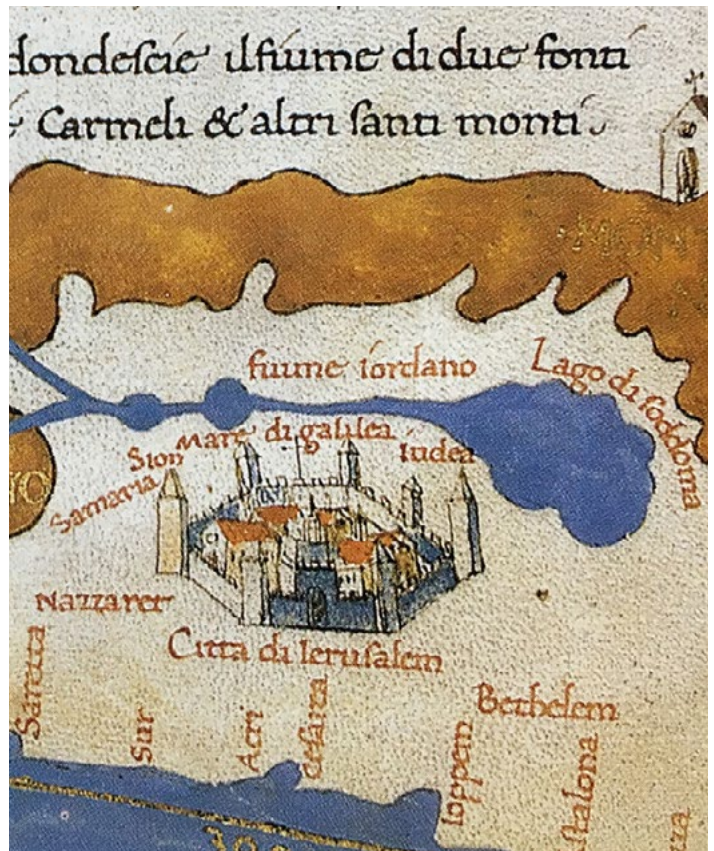 dondescie il fiume di due fonti
Carmeli & altri santi monti
fiume iordano
Lago di soddoma
Mare di galilea
Sion
iudea
Samaria
Nazzaret
Citta di Ierusalem
Saretta
Sur
Acri
Cesaria
Bethelem
Ioppem
stalona
za
30